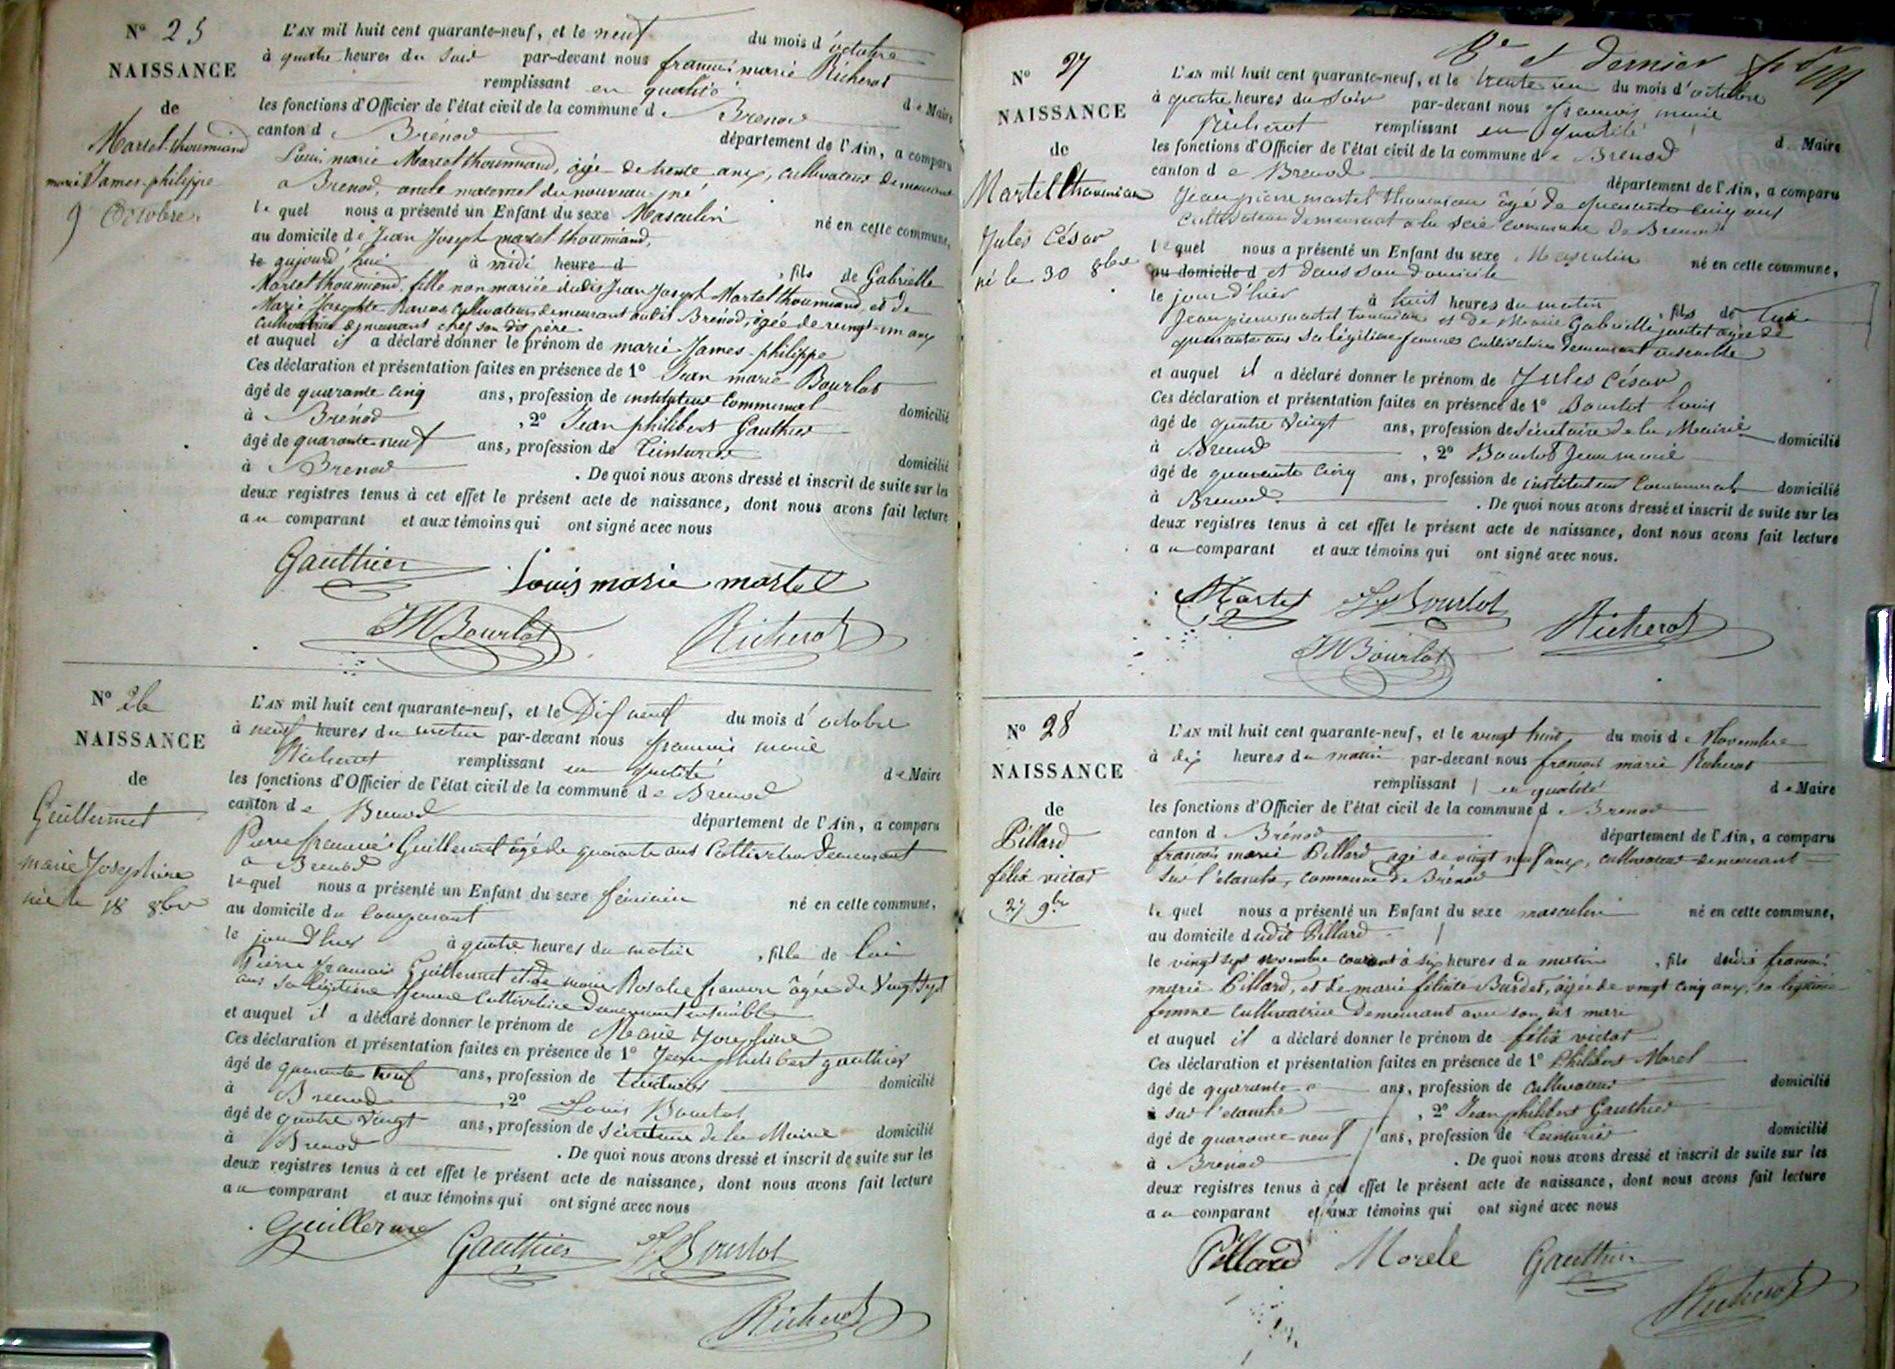 N° 25
NAISSANCE
de
Martel-thoumiand
marie James-philippe
9 Octobre.
L'AN mil huit cent quarante-neuf, et le neuf du mois d'octobre
à quatre heures du soir par-devant nous francois marie Richerot
remplissant en qualité de Maire
les fonctions d'Officier de l'état civil de la commune de Brenod
canton de Brénod département de l'Ain, a comparu
Louis marie Martel thoumiand, âgé de trente ans, cultivateur demeurant
a Brenod, oncle maternel du nouveau né
lequel nous a présenté un Enfant du sexe Masculin né en cette commune,
au domicile de Jean Joseph martel-thoumiand,
le aujourd'hui à midi heure d , fils de Gabrielle
Martel thoumiand, fille non mariée dudit Jean Joseph Martel thoumiand, et de
Marie Josephte cultivateurs demeurant audit Brénod, âgée de vingt-un ans
cultivatrice demeurant chez son dit père
et auquel il a déclaré donner le prénom de marie James-philippe
Ces déclaration et présentation faites en présence de 1° Jean marie Bourlot
âgé de quarante cinq ans, profession de instituteur Communal domicilié
à Brénod , 2° Jean philibert Gauthier
âgé de quarante-neuf ans, profession de Teinturier domicilié
à Brenod . De quoi nous avons dressé et inscrit de suite sur les
deux registres tenus à cet effet le présent acte de naissance, dont nous avons fait lecture
au comparant et aux témoins qui ont signé avec nous
Gauthier Louis marie martel
JM Bourlot Richerot
N° 26
NAISSANCE
de
Guillermet
marie Josephine
née le 18 8bre
L'AN mil huit cent quarante-neuf, et le Dix neuf du mois d'octobre
à neuf heures du matin par-devant nous francois marie
Richerot remplissant en qualité de Maire
les fonctions d'Officier de l'état civil de la commune de Brenod
canton de Brenod département de l'Ain, a comparu
Pierre francois Guillermet âgé de quarante ans Cultivateur demeurant
a Brenod
lequel nous a présenté un Enfant du sexe féminin né en cette commune,
au domicile du Comparant
le jour d'hier à quatre heures du matin , fille de lui
Pierre francois Guillermet et de marie Rosalie âgée de Vingt sept
ans sa légitime femme Cultivatrice demeurant ensemble
et auquel il a déclaré donner le prénom de Marie Josephine
Ces déclaration et présentation faites en présence de 1° Jean philibert gauthier
âgé de quarante neuf ans, profession de teinturier domicilié
à Brenod , 2° Louis Bourlot
âgé de quatre vingt ans, profession de Sécrétaire de la Mairie domicilié
à Brenod . De quoi nous avons dressé et inscrit de suite sur les
deux registres tenus à cet effet le présent acte de naissance, dont nous avons fait lecture
au comparant et aux témoins qui ont signé avec nous
Guillermet Gauthier L. Bourlot
Richerot
8e et dernier
N° 27
NAISSANCE
de
Martel thoumian
Jules César
né le 30 8bre
L'AN mil huit cent quarante-neuf, et le trente un du mois d'octobre
à quatre heures du soir par-devant nous francois marie
Richerot remplissant en qualité de Maire
les fonctions d'Officier de l'état civil de la commune de Brenod
canton de Brenod département de l'Ain, a comparu
Jean pierre martel thoumian âgé de quarante cinq ans
Cultivateur demeurant a la Scie Commune de Brenod
lequel nous a présenté un Enfant du sexe Masculin né en cette commune,
au domicile d et dans son domicile
le jour d'hier à huit heures du matin , fils de lui
Jean pierre martel toumian et de Marie Gabrielle jantet âgée de
quarante ans sa légitime femme Cultivatrice demeurant ensemble
et auquel il a déclaré donner le prénom de Jules César
Ces déclaration et présentation faites en présence de 1° Bourlot Louis
âgé de quatre Vingt ans, profession de Sécrétaire de la Mairie domicilié
à Brenod , 2° Bourlot Jean marie
âgé de quarante cinq ans, profession de instituteur Communal domicilié
à Brenod. . De quoi nous avons dressé et inscrit de suite sur les
deux registres tenus à cet effet le présent acte de naissance, dont nous avons fait lecture
au comparant et aux témoins qui ont signé avec nous.
Martel L. Bourlot Richerot
JM Bourlot
N° 28
NAISSANCE
de
Billard
félix victor
27 9bre
L'AN mil huit cent quarante-neuf, et le vingt huit du mois de Novembre
à dix heures du matin par-devant nous francois marie Richerot
remplissant en qualité de Maire
les fonctions d'Officier de l'état civil de la commune de Brenod
canton de Brénod département de l'Ain, a comparu
francois marie Billard, agé de vingt neuf ans, cultivateur demeurant
Sur l'etanche, commune de Brénod
lequel nous a présenté un Enfant du sexe masculin né en cette commune,
au domicile dudit Billard
le vingt sept novembre courant à six heures du matin , fils dudit francois
marie Billard, et de marie félicité Burdet, âgée de vingt cinq ans, sa légitime
femme Cultivatrice demeurant avec son dit mari
et auquel il a déclaré donner le prénom de félix victor
Ces déclaration et présentation faites en présence de 1° Philibert Morel
âgé de quarante ans, profession de cultivateur domicilié
à sur l'etanche , 2° Jean philibert Gauthier
âgé de quarante neuf ans, profession de Teinturier domicilié
à Brénod . De quoi nous avons dressé et inscrit de suite sur les
deux registres tenus à cet effet le présent acte de naissance, dont nous avons fait lecture
au comparant et aux témoins qui ont signé avec nous
Billard Morele Gauthier
Richerot